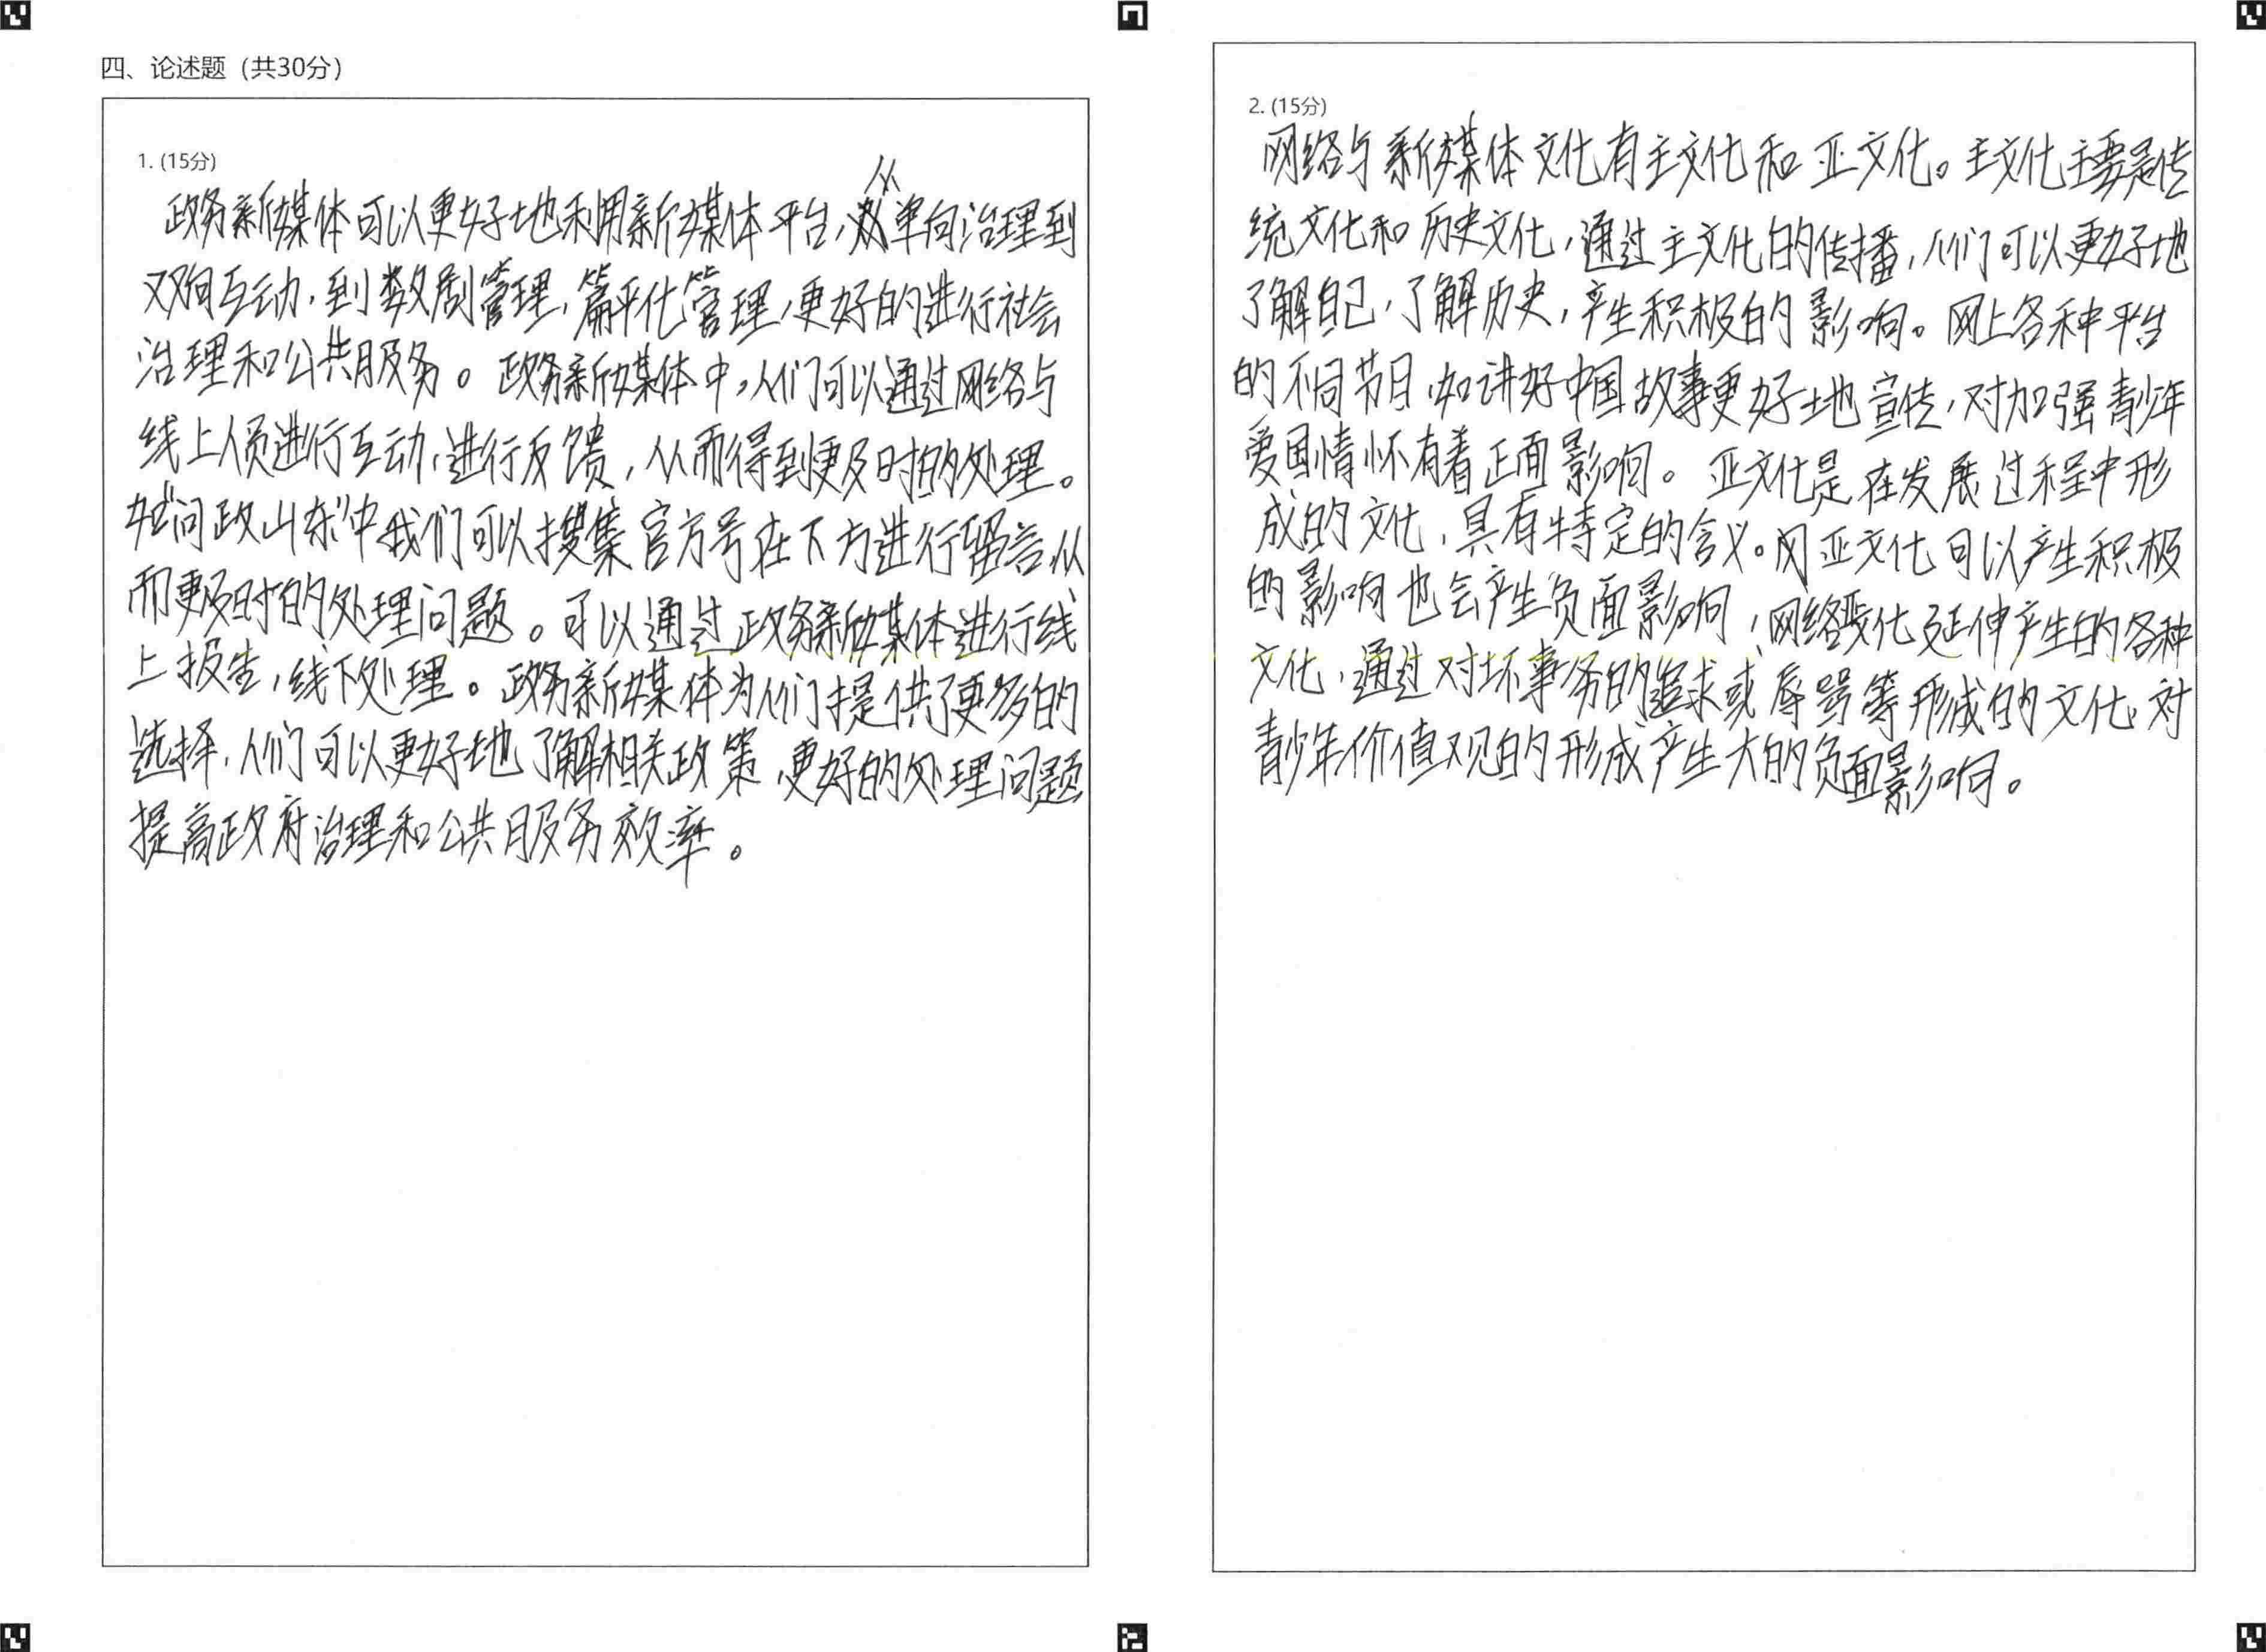 四、论述题（共30分）
1. (15分)
政务新媒体可以更好地利用新媒体平台，从单向治理到
双向互动，到数剧管理，篇平化管理，更好的进行社会
治理和公共服务。政务新媒体中，人们可以通过网络与
线上人员进行互动，进行反馈，从而得到更及时的处理。
如"问政山东"中我们可以搜集官方号在下方进行留言从
而更及时的处理问题。可以通过政务新媒体进行线
上报告，线下处理。政务新媒体为人们提供了更多的
选择，人们可以更好地了解相关政策，更好的处理问题
提高政府治理和公共服务效率。
2. (15分)
网络与新媒体文化有主文化和亚文化。主文化主要是传
统文化和历史文化，通过主文化的传播，人们可以更好地
了解自己，了解历史，产生积极的影响。网上各种平台
的不同节目，如讲好中国故事更好地宣传，对加强青少年
爱国情怀有着正面影响。亚文化是在发展过程中形
成的文化，具有特定的含义。网亚文化可以产生积极
的影响也会产生负面影响，网络文化延伸产生的各种
文化，通过对坏事务的追求或辱骂等形成的文化，对
青少年价值观的形成产生大的负面影响。